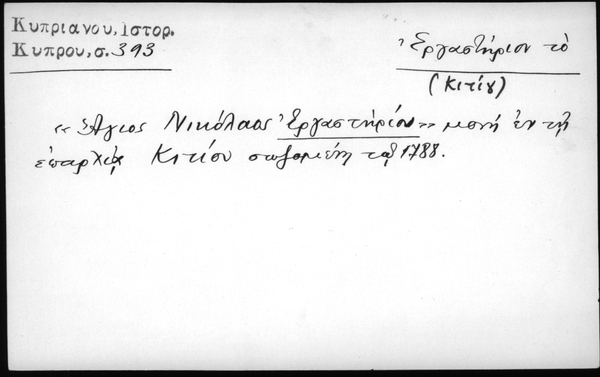 Κυπριανου, Ιστορ.
Κυπρου, σ. 393
Ἐργαστήριον τὸ
(Κιτίου)
« Ἅγιος Νικόλαος Ἐργαστηρίου » μονή ἐν τῇ
ἐπαρχίᾳ Κιτίου σωζομένη τῷ 1788.